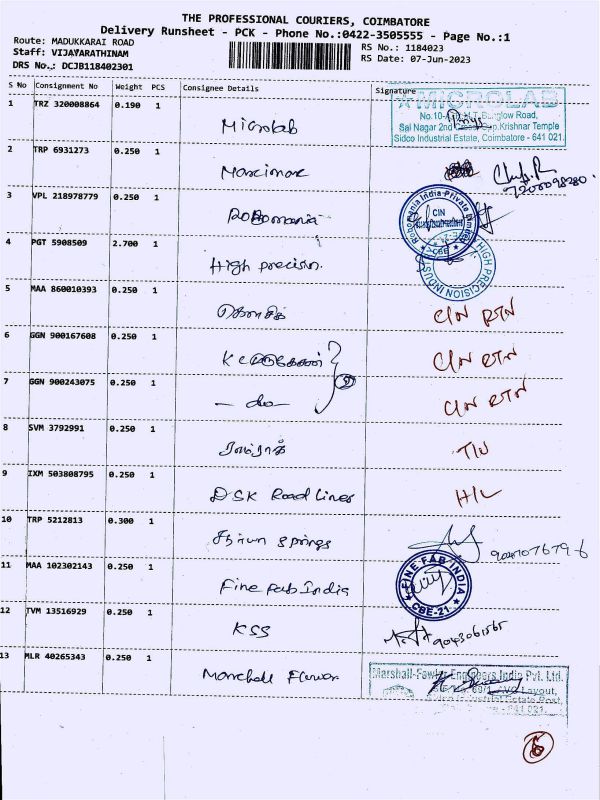 THE PROFESSIONAL COURIERS, COIMBATORE
Delivery Runsheet - PCK - Phone No.:0422-3505555 - Page No.:1
Route: MADUKKARAI ROAD
RS No.: 1184023
Staff: VIJAYARATHINAM
RS Date: 07-Jun-2023
DRS No.: DCJB118402301
S No Consignment No Weight PCS Consignee Details Signature
1 TRZ 320008864 0.190 1 Microlab
MICROLAB
Road,
Sai Nagar 2nd Krishnar Temple
Sidco Industrial Estate, Coimbatore - 641 021.
2 TRP 6931273 0.250 1
3 VPL 218978779 0.250 1 Robomania
Robomania India Private Limited
CIN
CBE
4 PGT 5908509 2.700 1 High precision.
HIGH PRECISION INDUS
5 MAA 860010393 0.250 1 கௌசிக் C/N RTN
6 GGN 900167608 0.250 1 C/N RTN
7 GGN 900243075 0.250 1 - do - C/N RTN
8 SVM 3792991 0.250 1
9 IXM 503808795 0.250 1 DSK Road Lines
10 TRP 5212813 0.300 1 Springs
11 MAA 102302143 0.250 1 Fine Fab India
FINE FAB INDIA
CBE-21.
12 TVM 13516929 0.250 1 KSS
9043061565
13 MLR 40265343 0.250 1
Marshall-Fowler Engineers India Pvt. Ltd.
Layout,
Industrial Estate Post,
- 641 021.